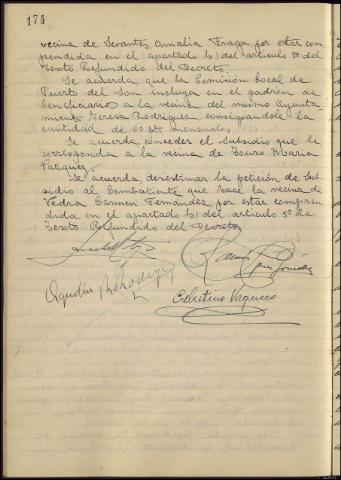 171
vecina de Serantes, Amalia Fraga, por estar com
prendida en el apartado b) del articulo 5º del
Texto Refundido del Decreto.
Se acuerda que la Comisión Local de
Puerto del Son incluya en el padrón de
beneficiarios a la vecina del mismo Ayunta
miento Teresa Rodriguez, consignandole la
cantidad de 60 pts. mensuales.
Se acuerda conceder el subsidio que le
corresponda a la vecina de Touro Maria
Vazquez.
Se acuerda desestimar la petición de Sub
sidio al Combatiente que hace la vecina de
Vedra Carmen Fernández por estar compren
dida en el apartado b) del articulo 5º de
Texto Refundido del Decreto.
Ramón
Agustin Rodriguez
Celestino Vaquero